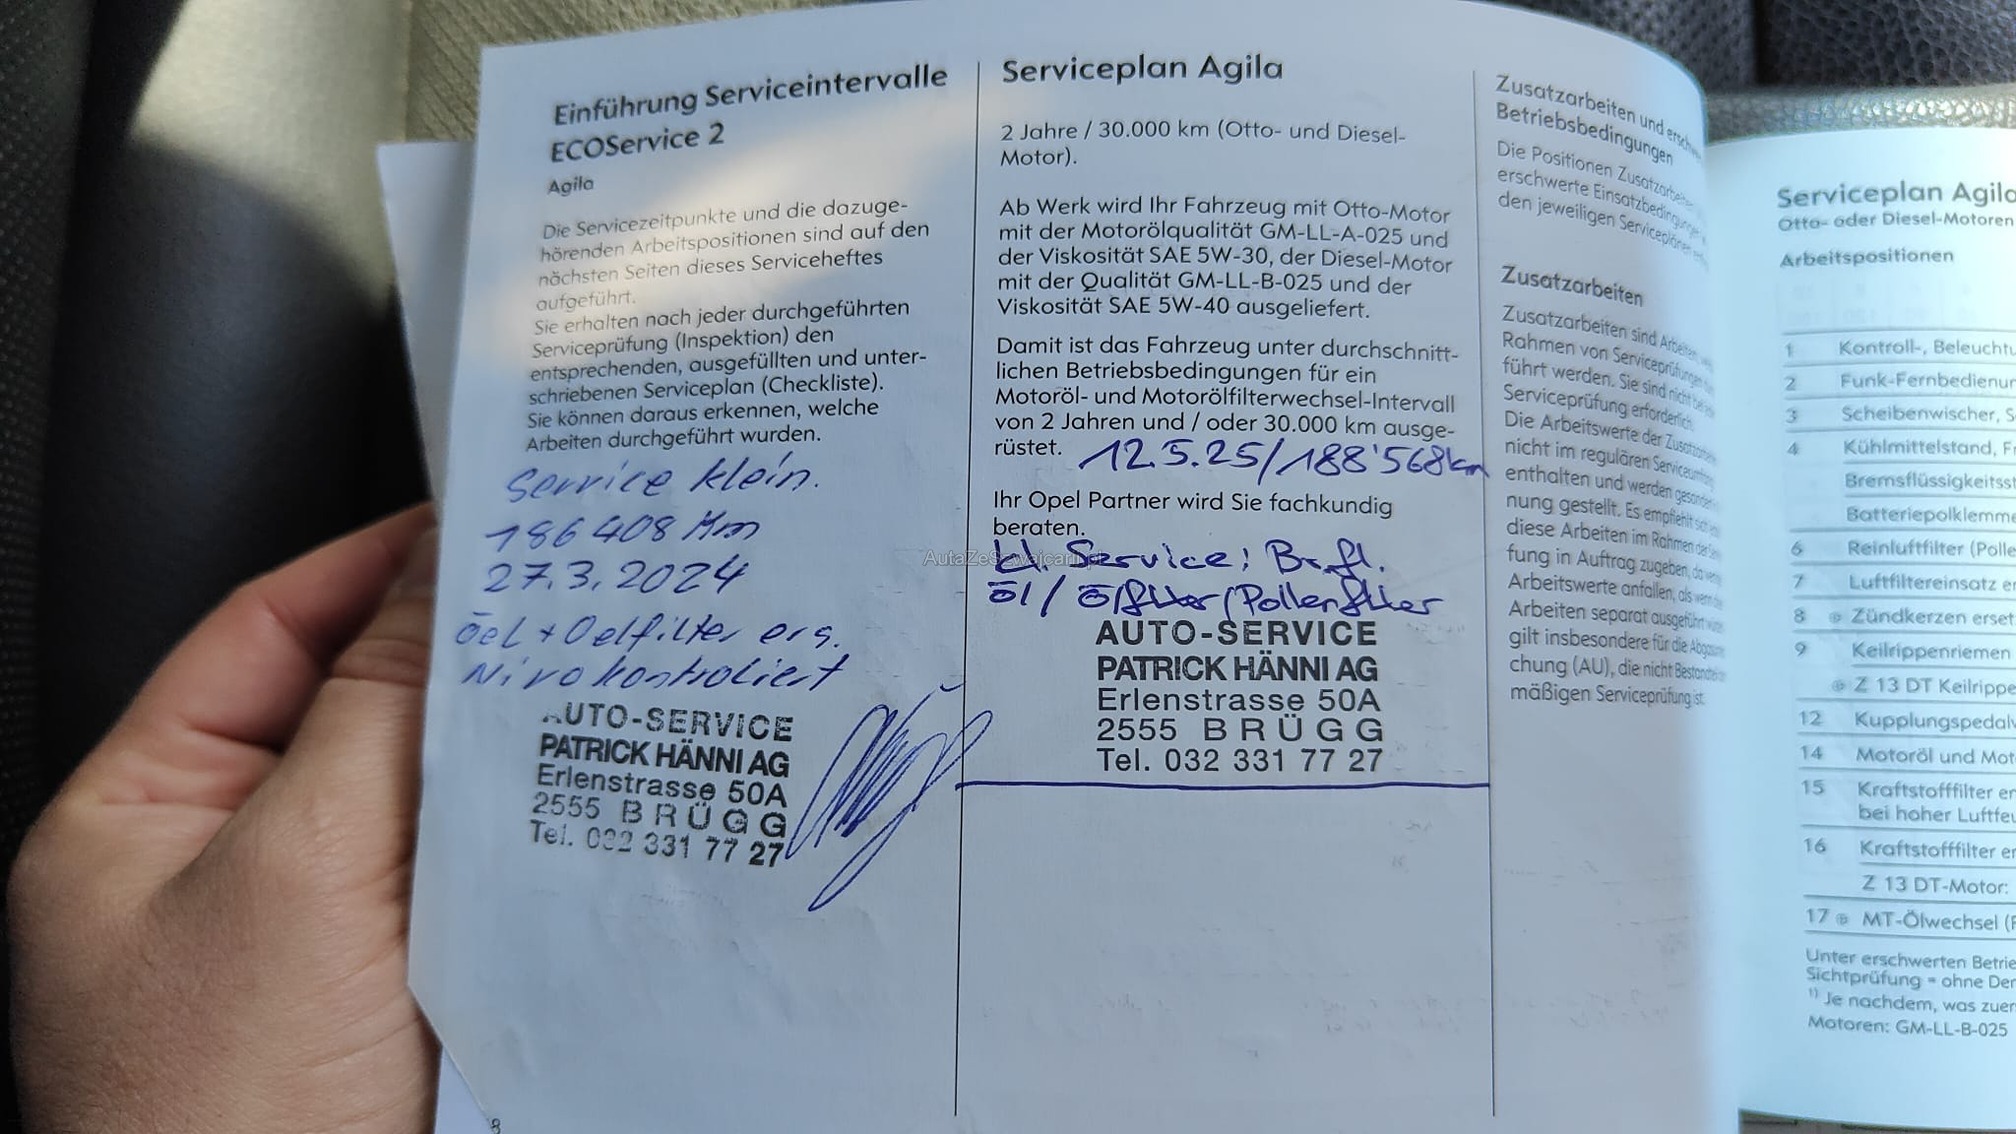 Einführung Serviceintervalle
ECOService 2
Agila
Die Servicezeitpunkte und die dazuge-
hörenden Arbeitspositionen sind auf den
nächsten Seiten dieses Serviceheftes
aufgeführt.
Sie erhalten nach jeder durchgeführten
Serviceprüfung (Inspektion) den
entsprechenden, ausgefüllten und unter-
schriebenen Serviceplan (Checkliste).
Sie können daraus erkennen, welche
Arbeiten durchgeführt wurden.
Service klein.
186408 Km
27.3.2024
Oel + Oelfilter ers.
Nivo kontroliert
AUTO-SERVICE
PATRICK HÄNNI AG
Erlenstrasse 50A
2555 BRÜGG
Tel. 032 331 77 27
8
Serviceplan Agila
2 Jahre / 30.000 km (Otto- und Diesel-
Motor).
Ab Werk wird Ihr Fahrzeug mit Otto-Motor
mit der Motorölqualität GM-LL-A-025 und
der Viskosität SAE 5W-30, der Diesel-Motor
mit der Qualität GM-LL-B-025 und der
Viskosität SAE 5W-40 ausgeliefert.
Damit ist das Fahrzeug unter durchschnitt-
lichen Betriebsbedingungen für ein
Motoröl- und Motorölfilterwechsel-Intervall
von 2 Jahren und / oder 30.000 km ausge-
rüstet. 12.5.25/188'568km
Ihr Opel Partner wird Sie fachkundig
beraten.
AutaZeSzwajcarii.pl
kl. Service: Br.fl.
Öl/ Ölfilter/Pollenfilter
AUTO-SERVICE
PATRICK HÄNNI AG
Erlenstrasse 50A
2555 BRÜGG
Tel. 032 331 77 27
Zusatzarbeiten und
Betriebsbedingungen
Die Positionen
erschwerte
den jeweiligen
Zusatzarbeiten
Zusatzarbeiten sind
Rahmen von Serviceprüfungen
führt werden. Sie sind nicht
Serviceprüfung erforderlich.
Die Arbeitswerte der
nicht im regulären
enthalten und werden
nung gestellt. Es empfiehlt
diese Arbeiten im Rahmen der
fung in Auftrag zugeben, da
Arbeitswerte anfallen, als wenn
Arbeiten separat ausgeführt
gilt insbesondere für die
chung (AU), die nicht
mäßigen Serviceprüfung ist.
Serviceplan Agila
Otto- oder Diesel-Motoren
Arbeitspositionen
1 Kontroll-,
2
3 Scheibenwischer,
4 Kühlmittelstand,
6 Reinluftfilter
7 Luftfiltereinsatz
8 Zündkerzen
9 Keilrippenriemen
Z 13 DT
12
14 Motoröl und
15 Kraftstofffilter
bei hoher
16 Kraftstofffilter
Z 13 DT-Motor:
17 MT-Ölwechsel
Unter erschwerten
Sichtprüfung = ohne
1) Je nachdem, was
Motoren: GM-LL-B-025